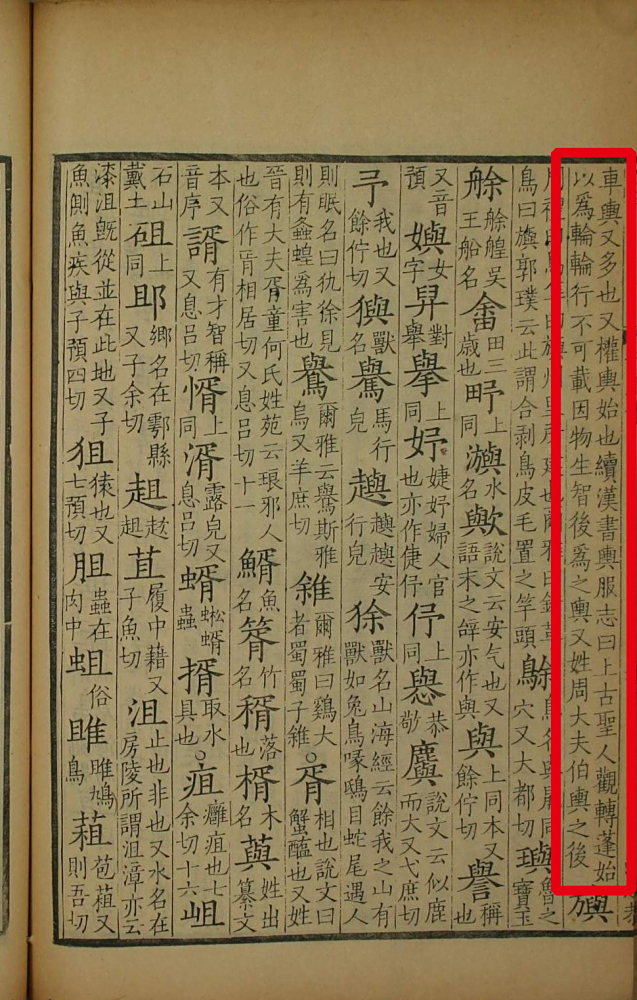 車輿又多也又權輿始也續漢書輿服志曰上古聖人觀轉蓬始以爲輪輪行不可載因物生智後爲之輿又姓周大夫伯輿之後旟
周禮曰鳥隼曰旟州里所建也爾雅曰錯革鳥曰旟郭璞云此謂合剥鳥皮毛置之竿頭鵌鳥名與鼠同穴又大都切璵魯之寶玉
艅艅艎吳王船名畬田三歲也㽳上同澦水名歟說文云安气也又語末之辝亦作與與上同本又餘佇切譽稱也
又音預㜿女字舁對舉擧上同妤婕妤婦人官也亦作倢伃伃上同恭敬說文云似鹿而大又弋庶切
予我也又餘佇切獸名馬行皃安行皃狳獸名山海經云餘我之山有獸如兔鳥喙鴟目蛇尾遇人
則眠名曰犰狳見則有螽蝗爲害也鸒爾雅云鸒斯雅烏又羊庶切雓爾雅曰鷄大者蜀蜀子雓○胥相也說文曰蟹醢也又姓
晉有大夫胥童何氏姓苑云琅邪人也俗作相居切又息呂切十一魚名竹名稰落也楈木名姓出纂文
本又音序諝有才智稱又息呂切㥠上同湑露皃又息呂切蝑蜙蝑蟲揟取水具也○疽癰疽也七余切十六岨
石山戴土砠上同鄉名在鄠縣又子余切趄趑趄苴履中藉又子魚切沮止也非也又水名在房陵所謂沮漳亦云
漆沮旣從並在此地又子魚側魚疾與子預四切狙猿也又七預切胆蟲在肉中蛆俗雎雎鳩鳥蒩苞蒩又則吾切